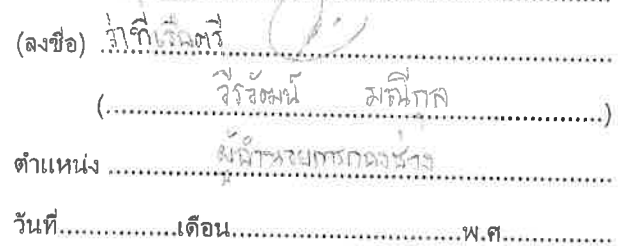 (ลงชื่อ) ว่าที่เรือตรี
(วีรวัฒน์ มณีกุล)
ตำแหน่ง ผู้อำนวยการกองช่าง
วันที่..............เดือน..............................พ.ศ..............